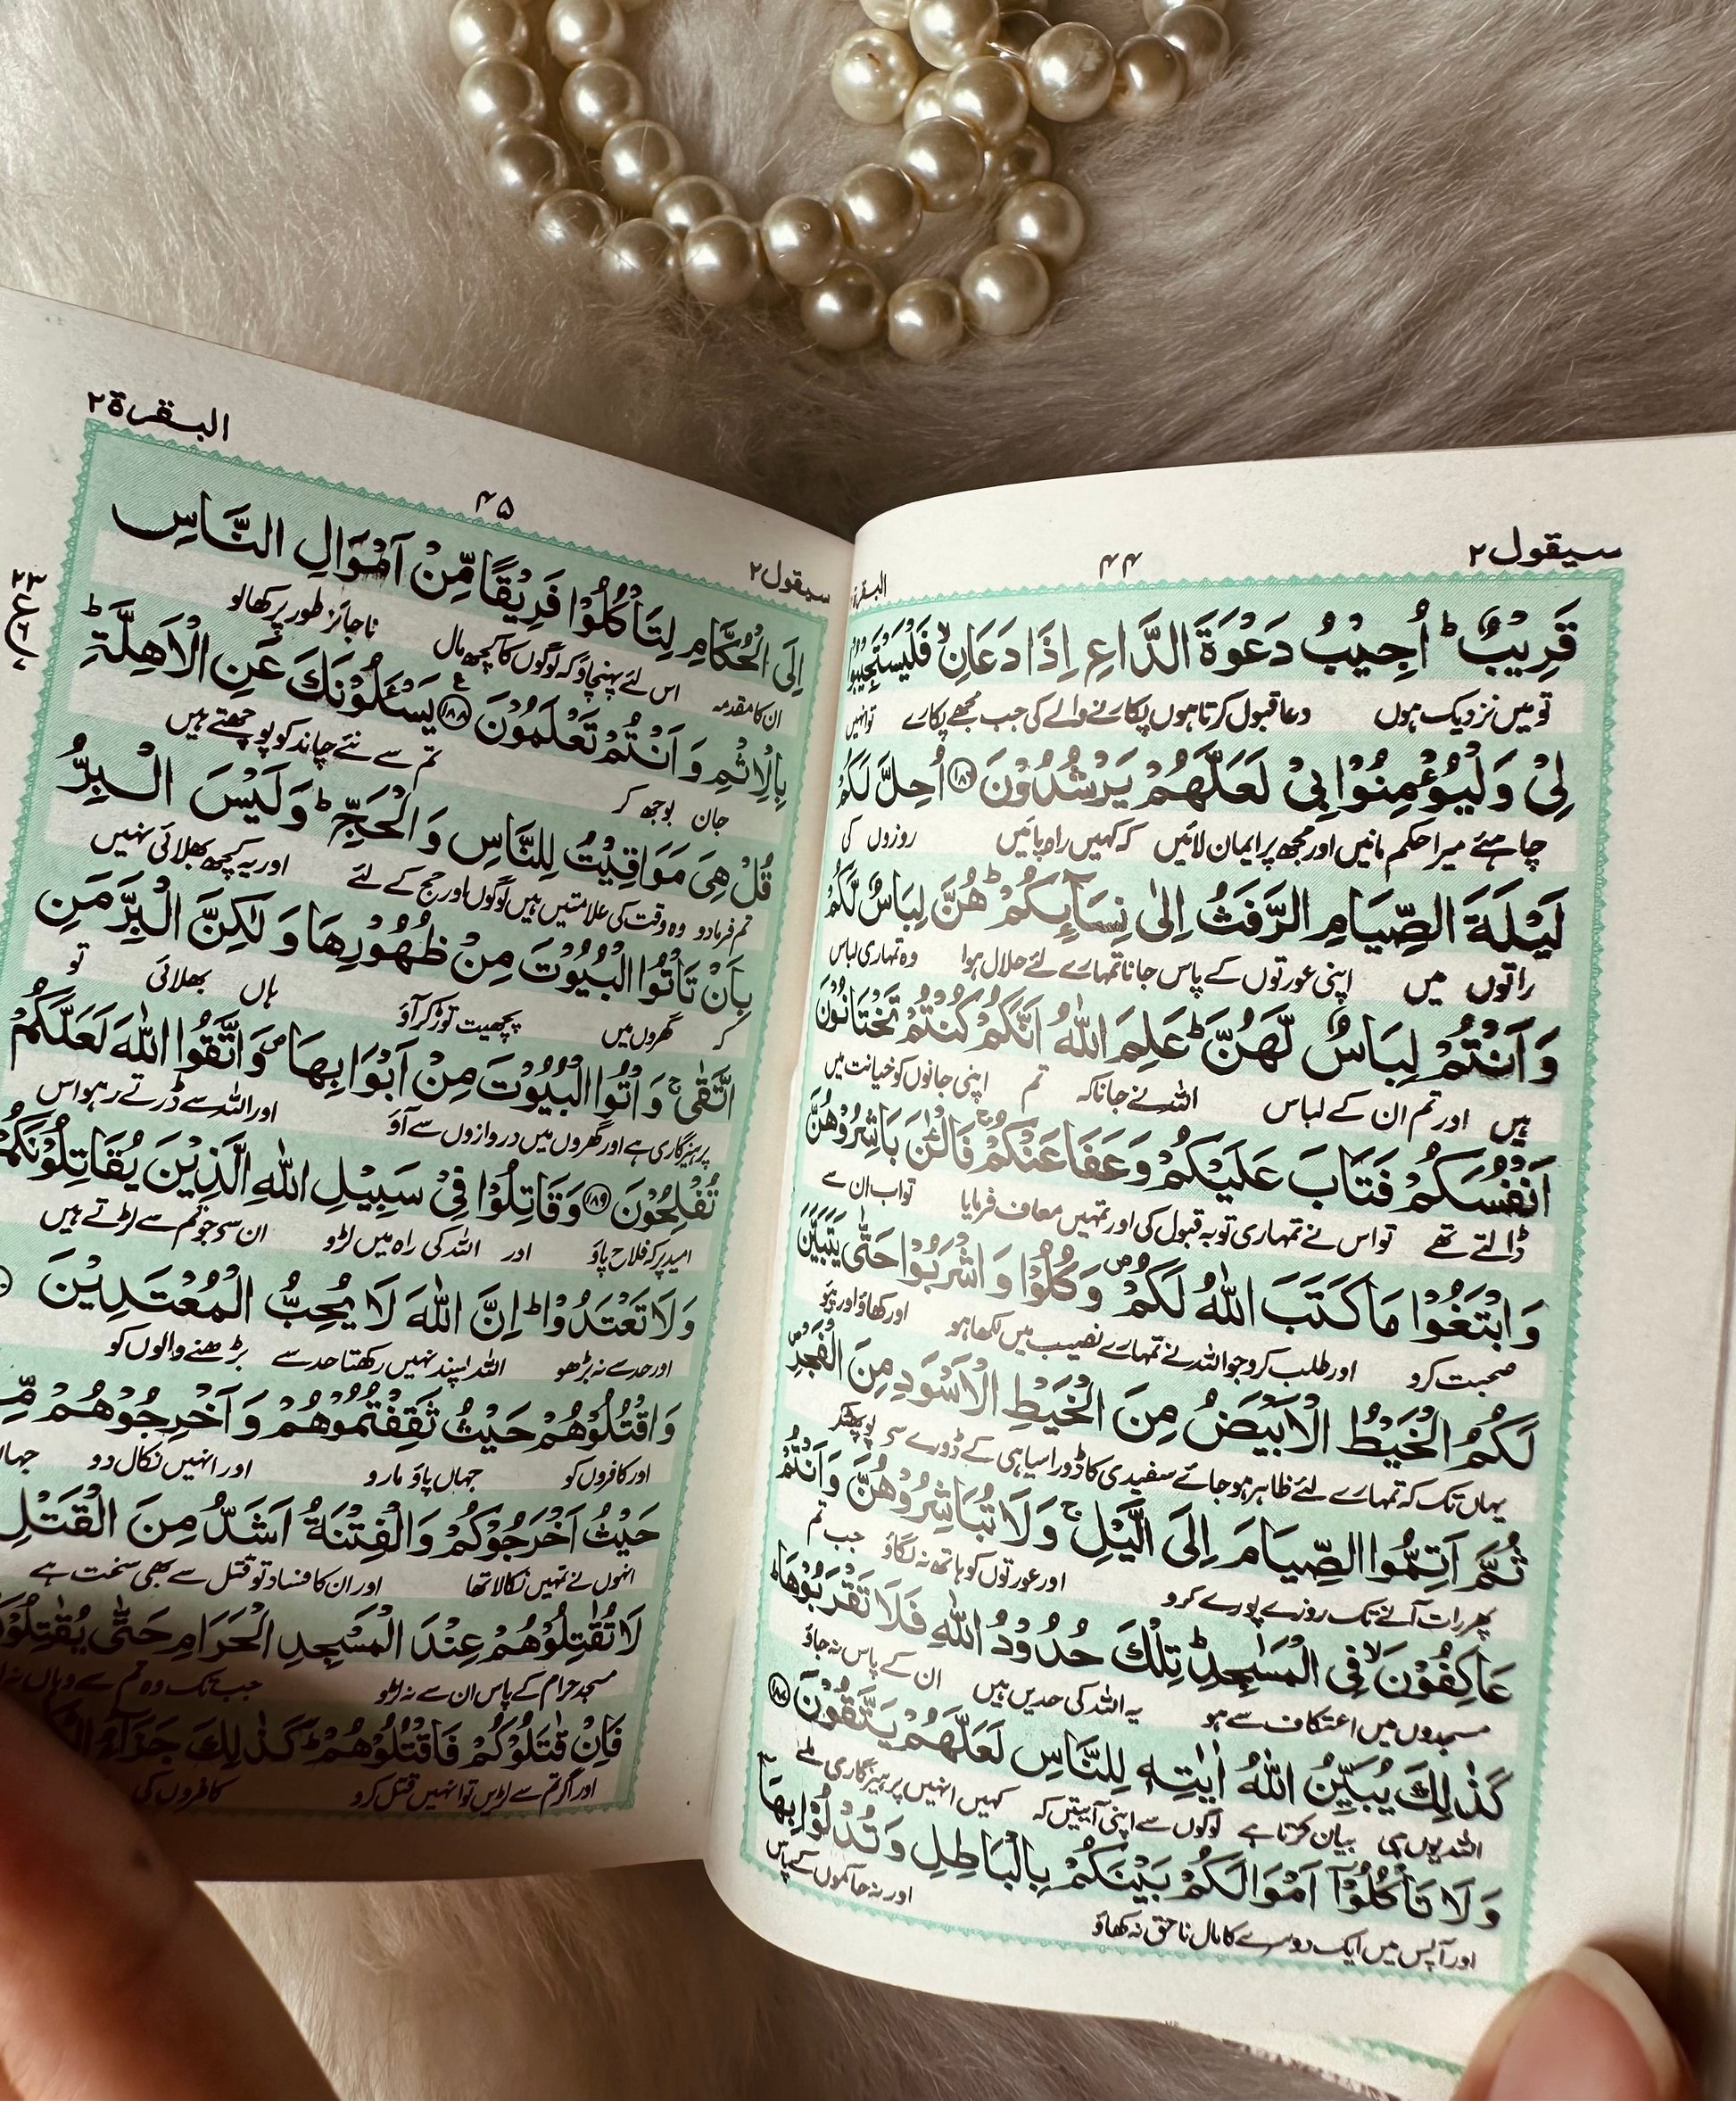 سيقول٢
٤٤
البقرة
قَرِيْبٌ ؕ اُجِيْبُ دَعْوَةَ الدَّاعِ اِذَا دَعَانِ ۙ فَلْيَسْتَجِيْبُوْا
تو میں نزدیک ہوں دعا قبول کرتا ہوں پکارنے والے کی جب مجھے پکارے تو انہیں
لِیْ وَلْيُؤْمِنُوْا بِیْ لَعَلَّهُمْ يَرْشُدُوْنَ ١٨٦ اُحِلَّ لَكُمْ
چاہئے میرا حکم مانیں اور مجھ پر ایمان لائیں کہ کہیں راہ پائیں روزوں کی
لَيْلَةَ الصِّيَامِ الرَّفَثُ اِلٰی نِسَآىِٕكُمْ ؕ هُنَّ لِبَاسٌ لَّكُمْ
راتوں میں اپنی عورتوں کے پاس جانا تمہارے لئے حلال ہوا وہ تمہاری لباس
وَاَنْتُمْ لِبَاسٌ لَّهُنَّ ؕ عَلِمَ اللّٰهُ اَنَّكُمْ كُنْتُمْ تَخْتَانُوْنَ
ہیں اور تم ان کے لباس اللہ نے جانا کہ تم اپنی جانوں کو خیانت میں
اَنْفُسَكُمْ فَتَابَ عَلَيْكُمْ وَعَفَا عَنْكُمْ ۚ فَالْـٰٔنَ بَاشِرُوْهُنَّ
ڈالتے تھے تو اس نے تمہاری توبہ قبول کی اور تمہیں معاف فرمایا تو اب ان سے
وَابْتَغُوْا مَا كَتَبَ اللّٰهُ لَكُمْ ۪ وَكُلُوْا وَاشْرَبُوْا حَتّٰی يَتَبَيَّنَ
صحبت کرو اور طلب کرو جو اللہ نے تمہارے نصیب میں لکھا ہو اور کھاؤ اور پیو
لَكُمُ الْخَيْطُ الْاَبْيَضُ مِنَ الْخَيْطِ الْاَسْوَدِ مِنَ الْفَجْرِ ۪
یہاں تک کہ تمہارے لئے ظاہر ہو جائے سفیدی کا ڈورا سیاہی کے ڈورے سے پو پھٹ کر
ثُمَّ اَتِمُّوا الصِّيَامَ اِلَی الَّيْلِ ۚ وَلَا تُبَاشِرُوْهُنَّ وَاَنْتُمْ
پھر رات آنے تک روزے پورے کرو اور عورتوں کو ہاتھ نہ لگاؤ جب تم
عَاكِفُوْنَ ۙ فِی الْمَسٰجِدِ ؕ تِلْكَ حُدُوْدُ اللّٰهِ فَلَا تَقْرَبُوْهَا ؕ
مسجدوں میں اعتکاف سے ہو یہ اللہ کی حدیں ہیں ان کے پاس نہ جاؤ
كَذٰلِكَ يُبَيِّنُ اللّٰهُ اٰيٰتِهٖ لِلنَّاسِ لَعَلَّهُمْ يَتَّقُوْنَ ١٨٧
اللہ یوں ہی بیان کرتا ہے لوگوں سے اپنی آیتیں کہ کہیں انہیں پرہیزگاری ملے
وَلَا تَاْكُلُوْۤا اَمْوَالَكُمْ بَيْنَكُمْ بِالْبَاطِلِ وَتُدْلُوْا بِهَاۤ
اور آپس میں ایک دوسرے کا مال ناحق نہ کھاؤ اور نہ حاکموں کے پاس
سيقول٢
٤٥
البقرة٢
اِلَی الْحُكَّامِ لِتَاْكُلُوْا فَرِيْقًا مِّنْ اَمْوَالِ النَّاسِ
ان کا مقدمہ اس لئے پہنچاؤ کہ لوگوں کا کچھ مال ناجائز طور پر کھالو
بِالْاِثْمِ وَاَنْتُمْ تَعْلَمُوْنَ ١٨٨ يَسْـَٔلُوْنَكَ عَنِ الْاَهِلَّةِ ؕ
جان بوجھ کر تم سے نئے چاند کو پوچھتے ہیں
قُلْ هِیَ مَوَاقِيْتُ لِلنَّاسِ وَالْحَجِّ ؕ وَلَيْسَ الْبِرُّ
تم فرمادو وہ وقت کی علامتیں ہیں لوگوں اور حج کے لئے اور یہ کچھ بھلائی نہیں
بِاَنْ تَاْتُوا الْبُيُوْتَ مِنْ ظُهُوْرِهَا وَلٰكِنَّ الْبِرَّ مَنِ
کہ گھروں میں پچھیت توڑ کر آؤ ہاں بھلائی تو
اتَّقٰی ۚ وَاْتُوا الْبُيُوْتَ مِنْ اَبْوَابِهَا ۪ وَاتَّقُوا اللّٰهَ لَعَلَّكُمْ
پرہیزگاری ہے اور گھروں میں دروازوں سے آؤ اور اللہ سے ڈرتے رہو اس
تُفْلِحُوْنَ ١٨٩ وَقَاتِلُوْا فِیْ سَبِيْلِ اللّٰهِ الَّذِيْنَ يُقَاتِلُوْنَكُمْ
امید پر کہ فلاح پاؤ اور اللہ کی راہ میں لڑو ان سے جو تم سے لڑتے ہیں
وَلَا تَعْتَدُوْا ؕ اِنَّ اللّٰهَ لَا يُحِبُّ الْمُعْتَدِيْنَ
اور حد سے نہ بڑھو اللہ پسند نہیں رکھتا حد سے بڑھنے والوں کو
وَاقْتُلُوْهُمْ حَيْثُ ثَقِفْتُمُوْهُمْ وَاَخْرِجُوْهُمْ مِّنْ
اور کافروں کو جہاں پاؤ مارو اور انہیں نکال دو جہاں
حَيْثُ اَخْرَجُوْكُمْ وَالْفِتْنَةُ اَشَدُّ مِنَ الْقَتْلِ
انہوں نے تمہیں نکالا تھا اور ان کا فساد تو قتل سے بھی سخت ہے
لَا تُقٰتِلُوْهُمْ عِنْدَ الْمَسْجِدِ الْحَرَامِ حَتّٰی
مسجد حرام کے پاس ان سے نہ لڑو جب تک وہ تم سے وہاں نہ
فَاِنْ قٰتَلُوْكُمْ فَاقْتُلُوْهُمْ ؕ كَذٰلِكَ جَزَآءُ
اور اگر تم سے لڑیں تو انہیں قتل کرو کافروں کی